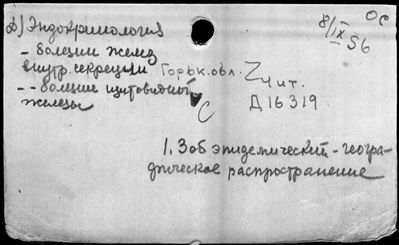 Д) Эндокринология
8/IX 56
ОС
- болезни желез
внутр. секреции
Горьк. обл. Z чит.
-- болезни щитовидной
железы
С
Д 16319
1. Зоб эпидемический - геогра-
фическое распространение